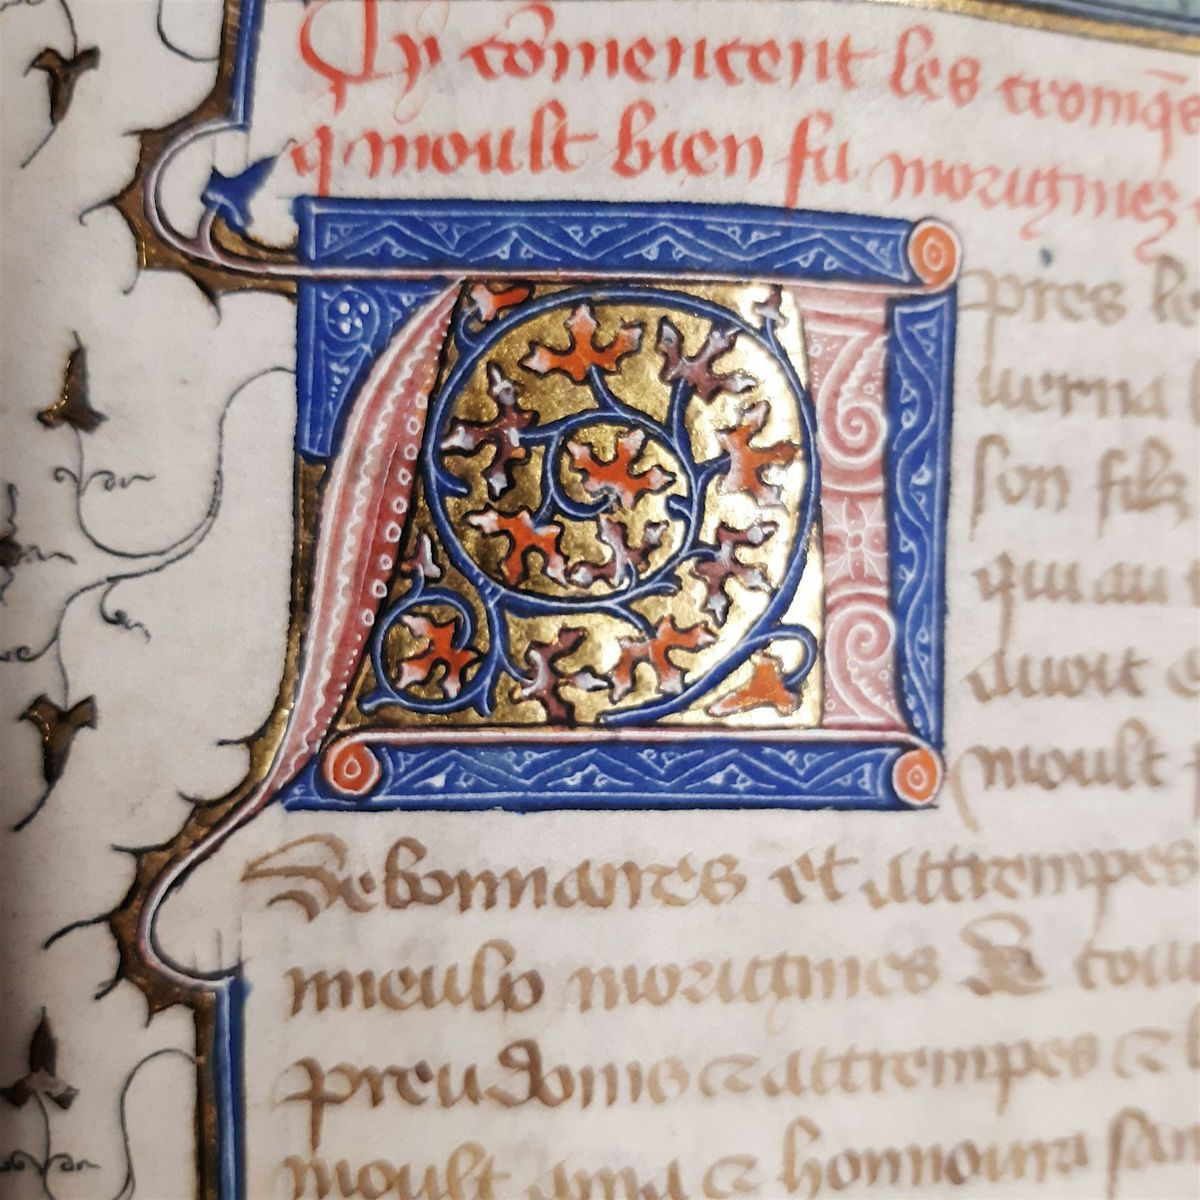 Cy cōmencent les croniq̄s
q̄ moult bien fu moriginez
Apres le
uerna
son filz
qui au
auoit
moult
Debonnaires et attrempes
mieulx moriginés & tou
preudoms ⁊ attrempes ⁊
moult ama ⁊ honnoura san